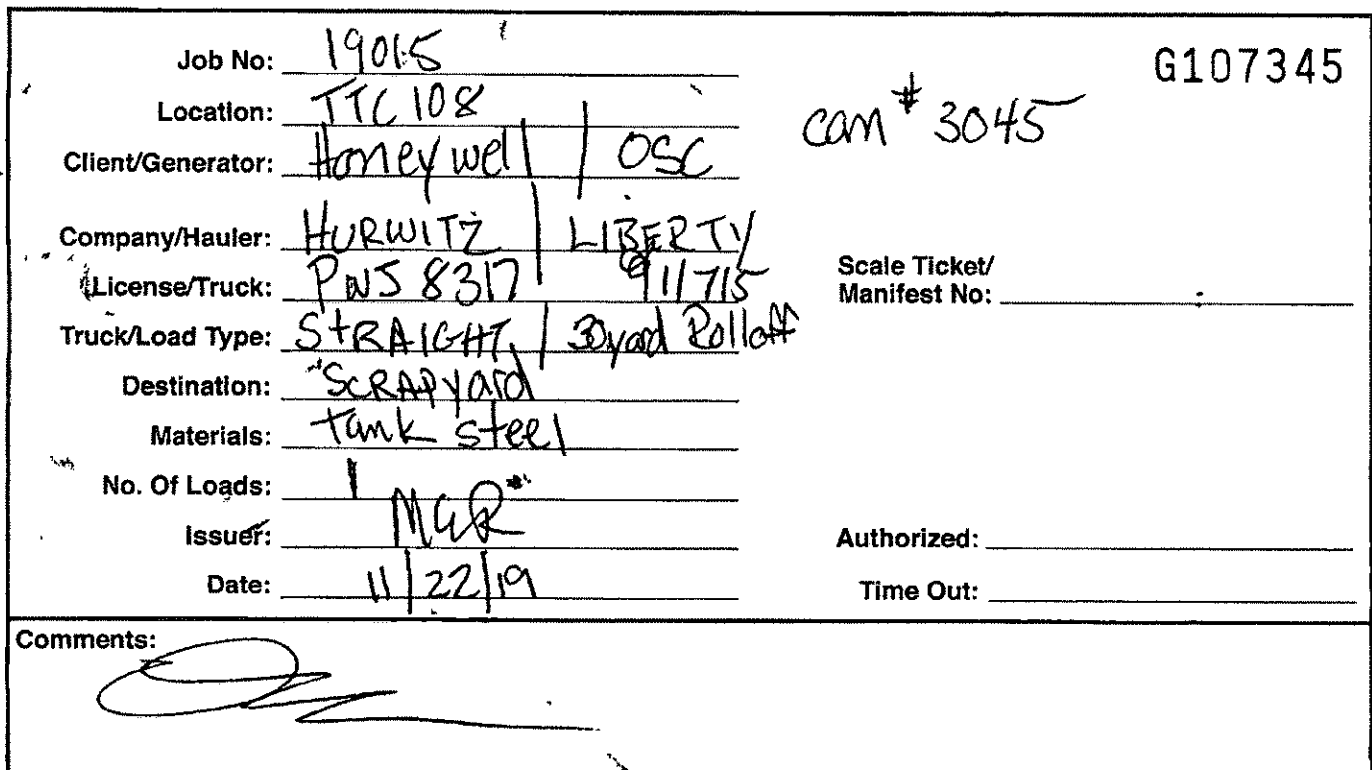 Job No: 19015
G107345
Location: TTC 108
can # 3045
Client/Generator: Honeywell / OSC
Company/Hauler: HURWITZ / LIBERTY
License/Truck: PWJ 8317
Scale Ticket/
Manifest No:
Truck/Load Type: StRAIGHT / 30yard Rolloff
Destination: SCRAPyard
Materials: tank steel
No. Of Loads: 1
Issuer: MGR
Authorized:
Date: 11/22/19
Time Out:
Comments: